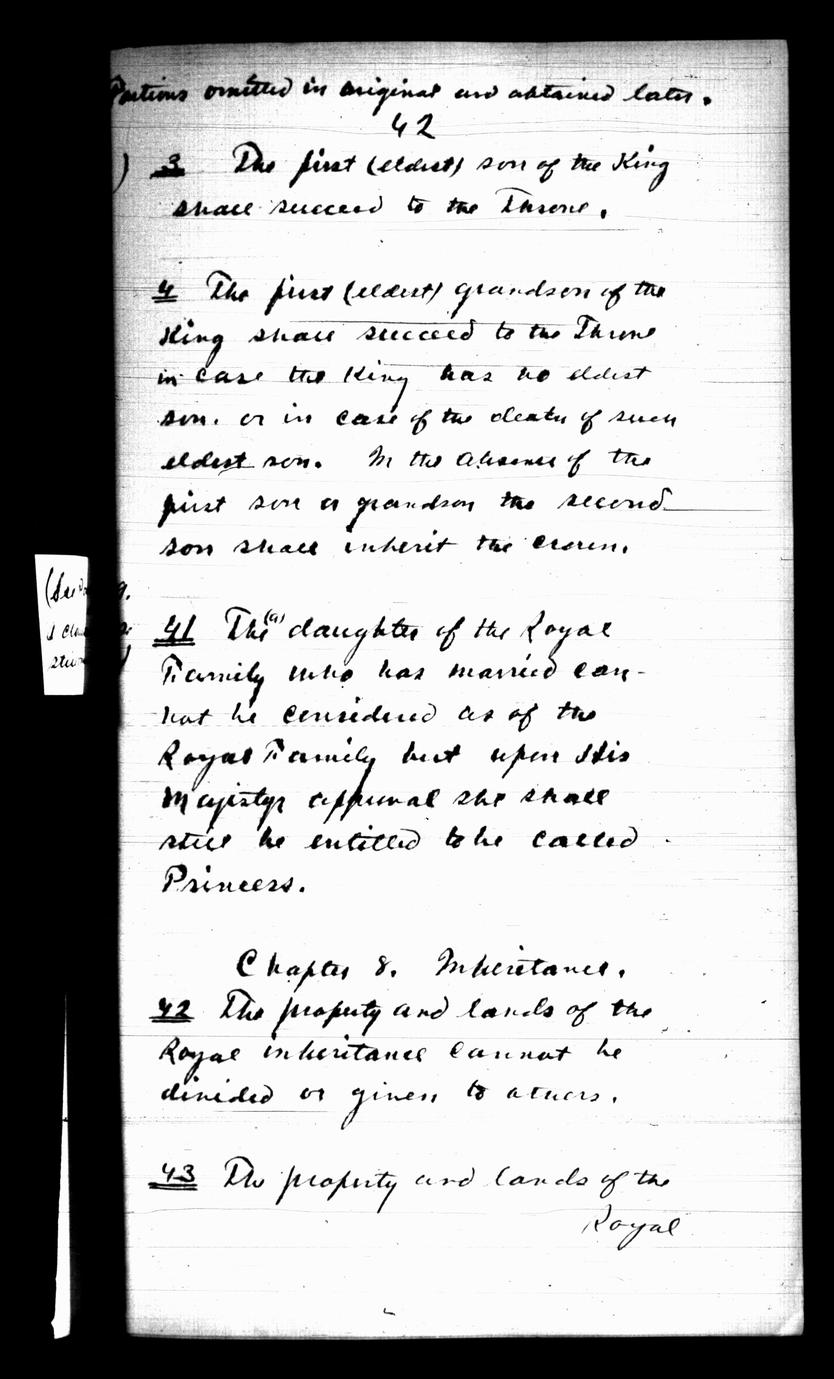 Portions omitted in original and obtained later.
42
) 3 The first (eldest) son of the King
shall succeed to the Throne.
4 The first (eldest) grandson of the
King shall succeed to the Throne
in case the King has no eldest
son. or in case of the death of such
eldest son. In the absence of the
first son or grandson the second
son shall inherit the crown.
(See
41 The (a) daughter of the Royal
Family who has married can-
not be considered as of the
Royal Family but upon His
Majistys approval she shall
still be entitled to be called
Princess.
Chapter 8. Inheritance.
42 The property and lands of the
Royal inheritance cannot be
divided or given to others.
43 The property and lands of the
Royal